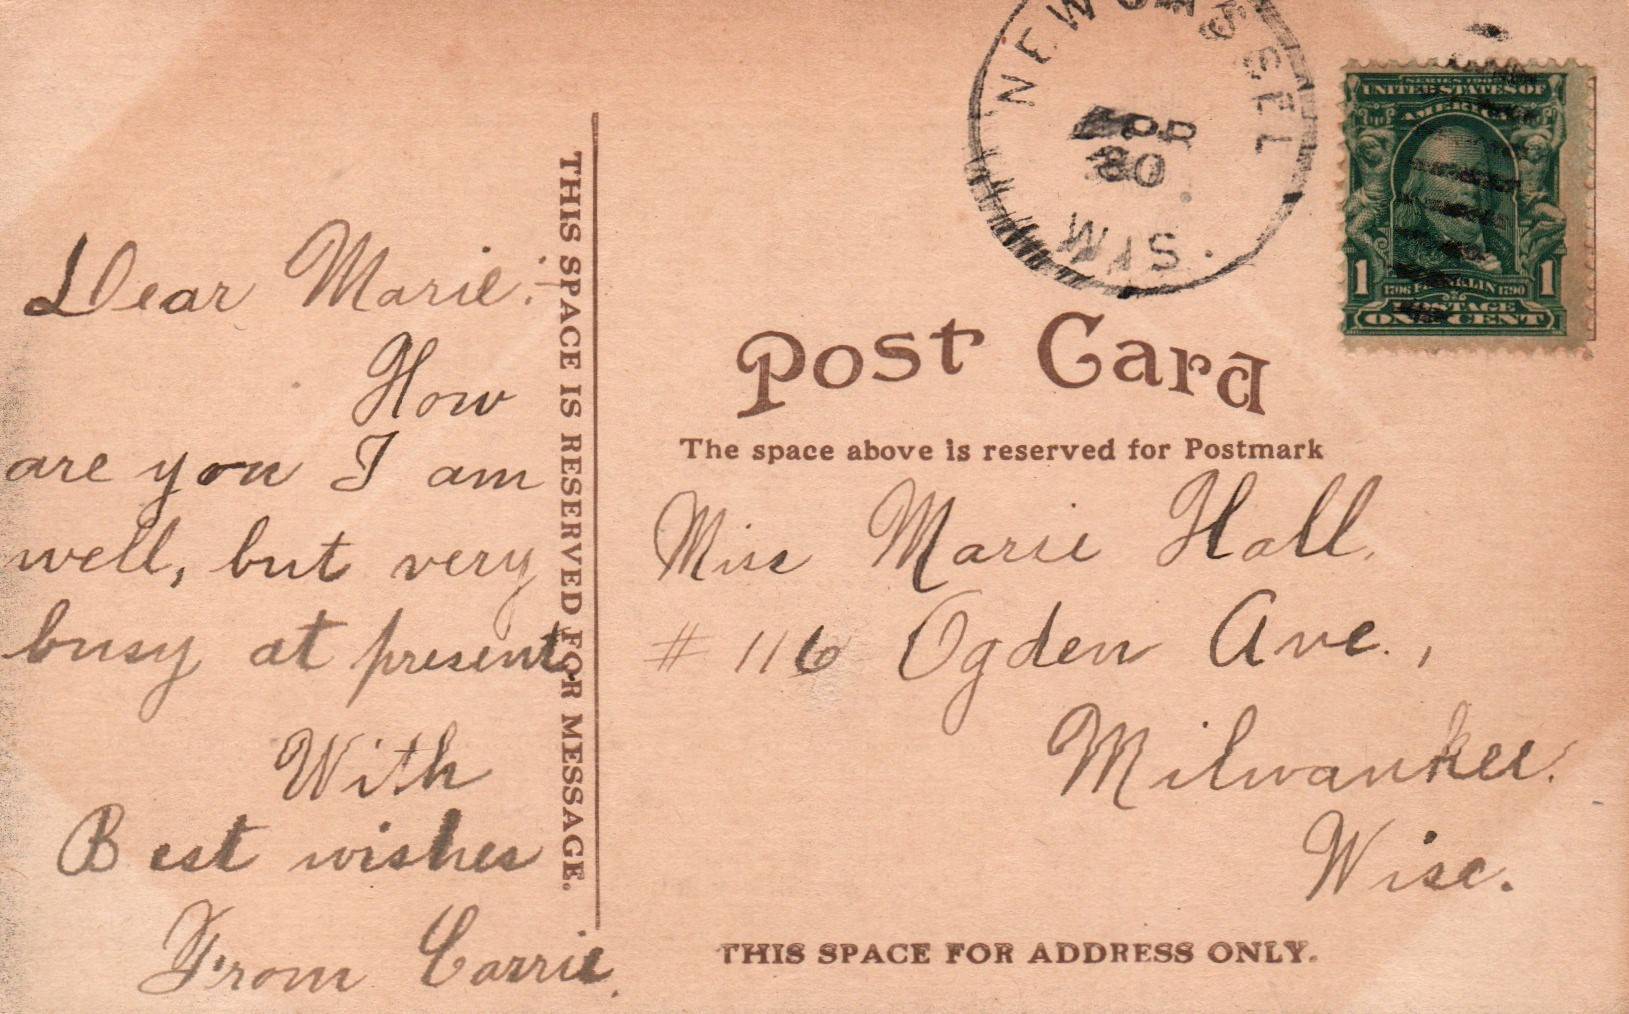 Dear Marie:-
How
are you I am
well, but very
busy at present
With
Best wishes
From Carrie.
THIS SPACE IS RESERVED FOR MESSAGE.
NEW CASSEL
APR
30
WIS.
SERIES 1902
UNITED STATES OF
AMERICA
1 1706 FRANKLIN 1790 1
POSTAGE
ONE CENT
Post Card
The space above is reserved for Postmark
Miss Marie Hall.
# 116 Ogden Ave.,
Milwaukee.
Wisc.
THIS SPACE FOR ADDRESS ONLY.